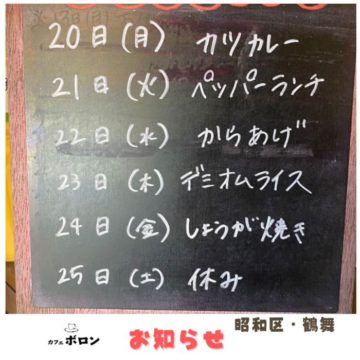 20日(月) カツカレー
21日(火) ペッパーランチ
22日(水) からあげ
23日(木) デミオムライス
24日(金) しょうが焼き
25日(土) 休み
昭和区・鶴舞
カフェ ボロン お知らせ